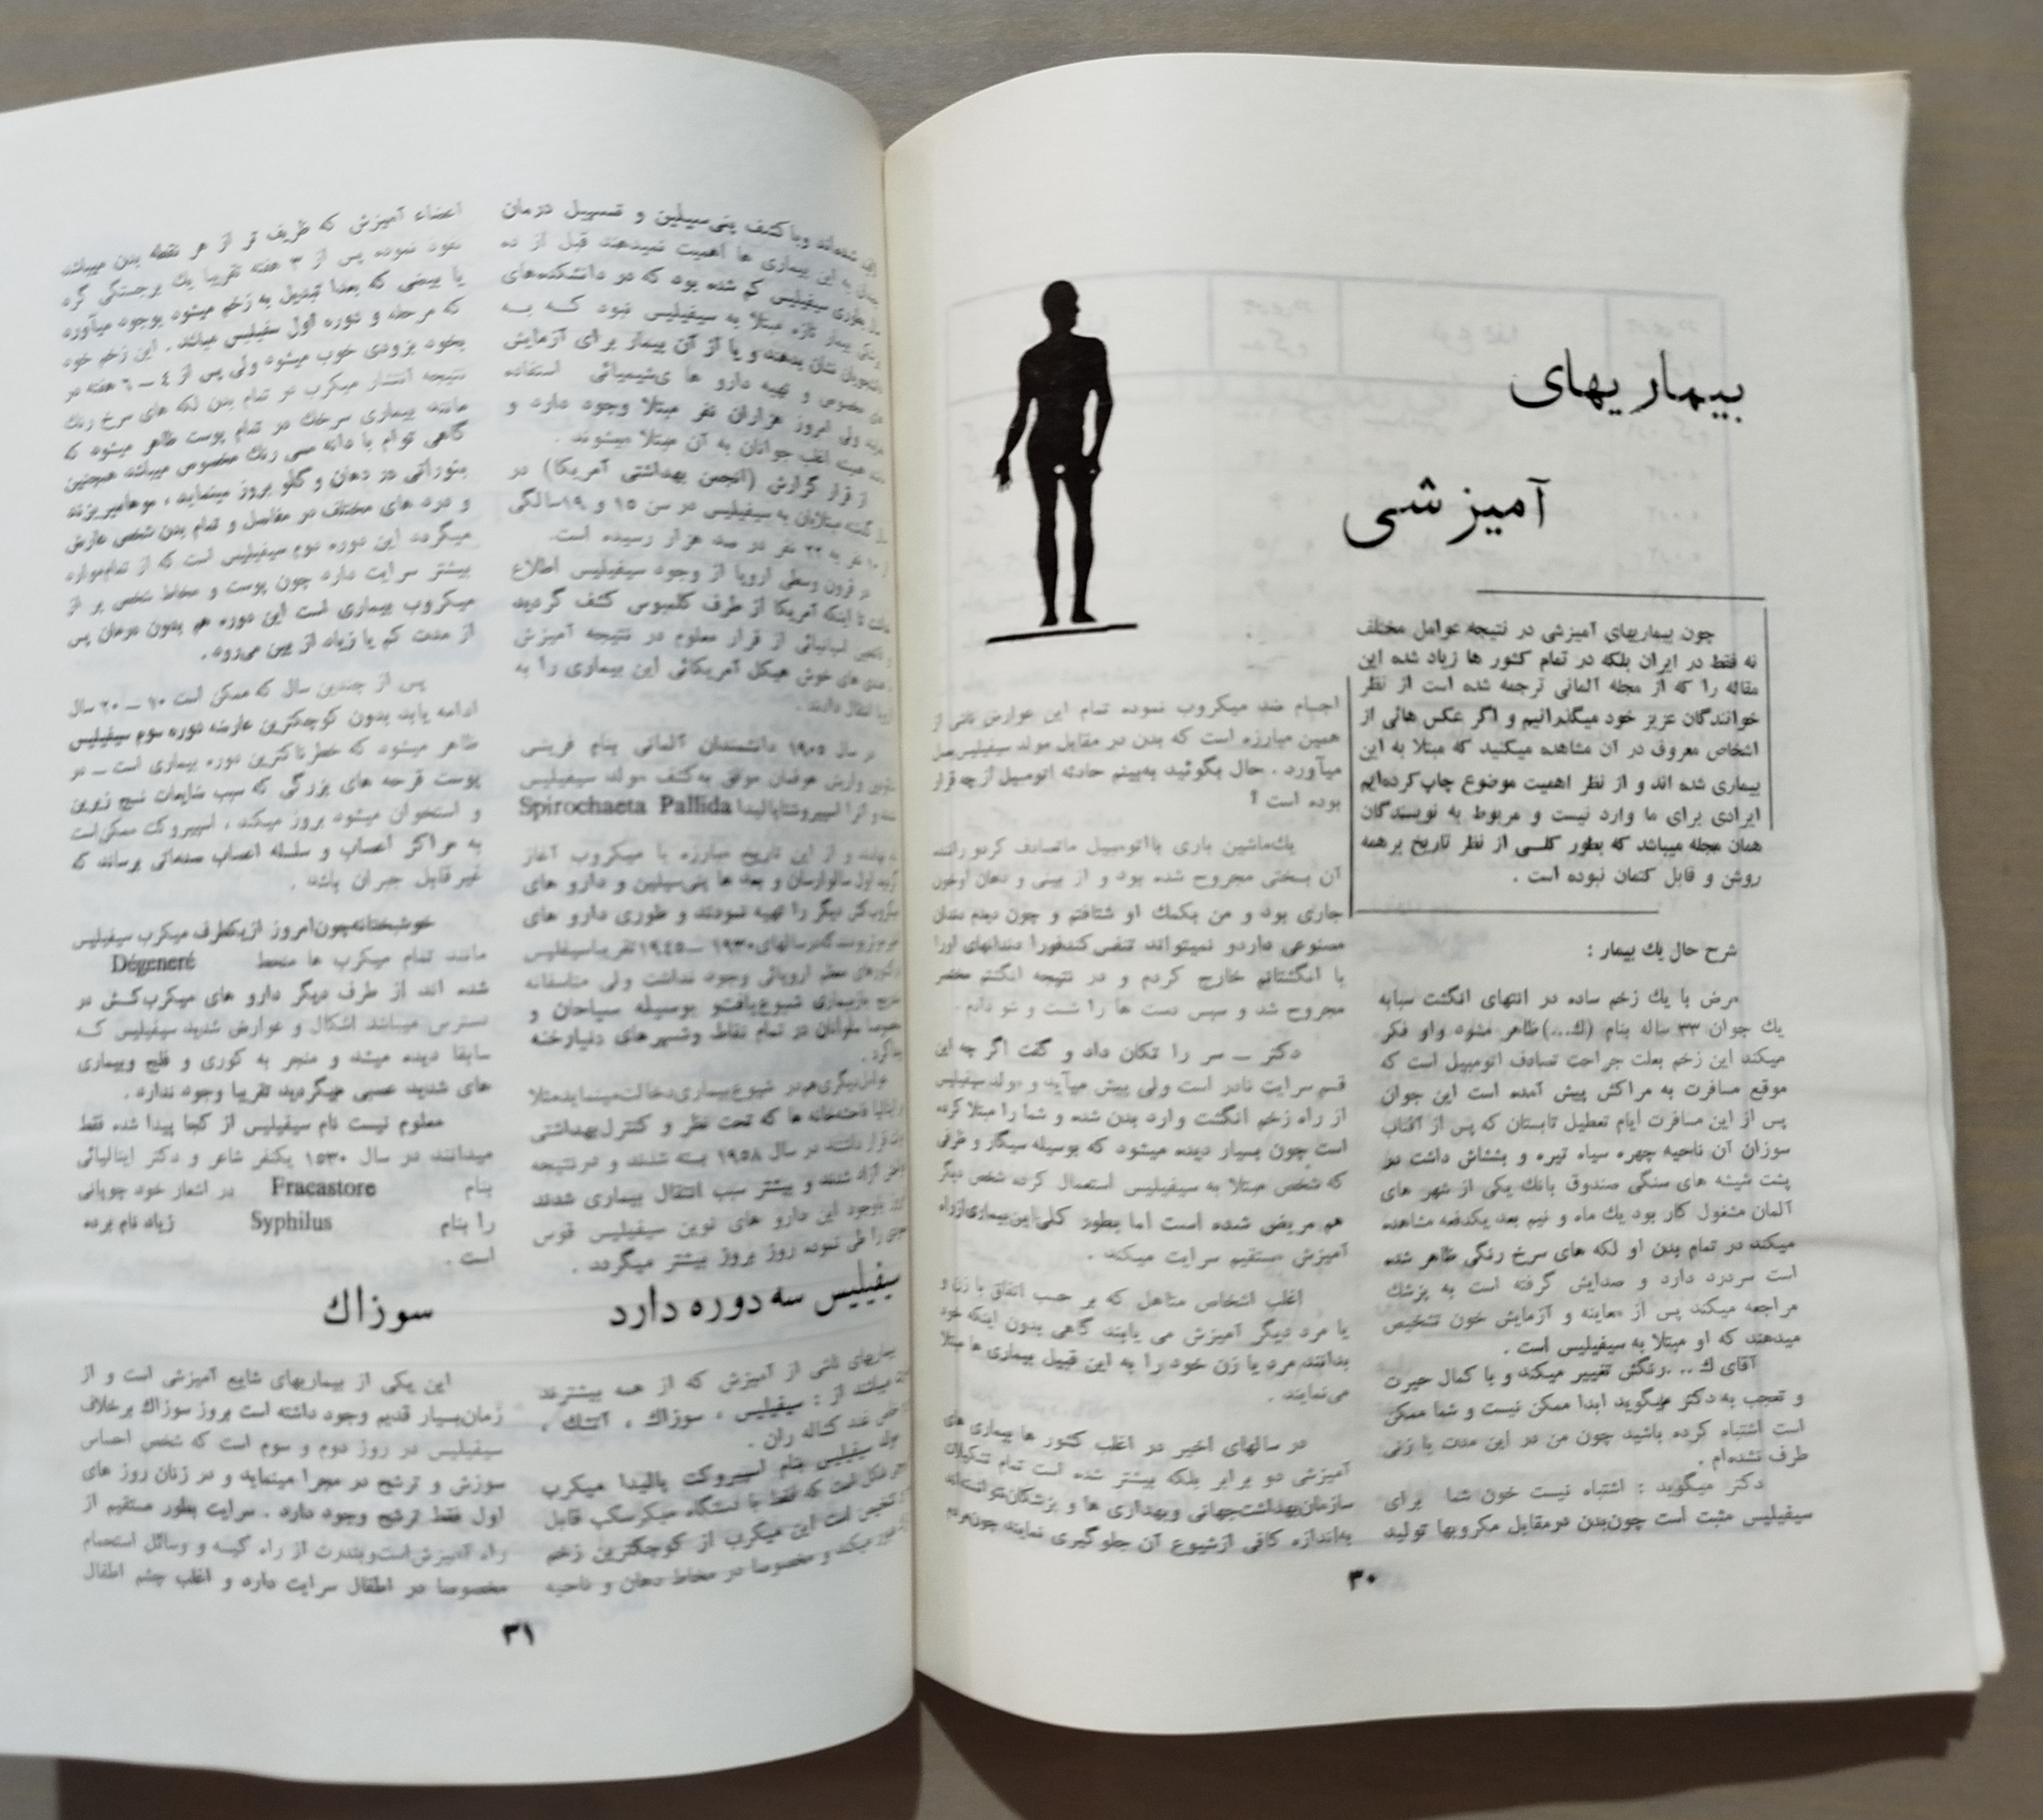 بیماریهای
آمیزشی
چون بیماریهای آمیزشی در نتیجه عوامل مختلف
نه فقط در ایران بلکه در تمام کشور ها زیاد شده این
مقاله را که از مجله آلمانی ترجمه شده است از نظر
خوانندگان عزیز خود میگذرانیم و اگر عکس هائی از
اشخاص معروف در آن مشاهده میکنید که مبتلا به این
بیماری شده اند و از نظر اهمیت موضوع چاپ کرده‌ایم
ایرادی برای ما وارد نیست و مربوط به نویسندگان
همان مجله میباشد که بطور کلی از نظر تاریخ بر همه
روشن و قابل کتمان نبوده است .
شرح حال یك بیمار :
مرض با یك زخم ساده در انتهای انگشت سبابه
یك جوان ۳۳ ساله بنام (ك...) ظاهر میشود واو فکر
میکند این زخم بعلت جراحت تصادف اتومبیل است که
موقع مسافرت به مراکش پیش آمده است این جوان
پس از این مسافرت ایام تعطیل تابستان که پس از آفتاب
سوزان آن ناحیه چهره سیاه تیره و بشاش داشت در
پشت شیشه های سنگی صندوق بانك یکی از شهر های
آلمان مشغول کار بود یك ماه و نیم بعد یکدفعه مشاهده
میکند در تمام بدن او لکه های سرخ رنگی ظاهر شده
است سردرد دارد و صدایش گرفته است به پزشك
مراجعه میکند پس از معاینه و آزمایش خون تشخیص
میدهند که او مبتلا به سیفیلیس است .
آقای ك ... رنگش تغییر میکند و با کمال حیرت
و تعجب به دکتر میگوید ابدا ممکن نیست و شما ممکن
است اشتباه کرده باشید چون من در این مدت با زنی
طرف نشده‌ام .
دکتر میگوید : اشتباه نیست خون شما برای
سیفیلیس مثبت است چون‌بدن درمقابل مکروبها تولید
اجسام ضد میکروب نموده تمام این عوارض ناشی از
همین مبارزه است که بدن در مقابل مولد سیفیلیس بعمل
میآورد . حال بگوئید به‌بینم حادثه اتومبیل از چه قرار
بوده است ؟
یك‌ماشین باری بااتومبیل ماتصادف کردو راننده
آن بسختی مجروح شده بود و از بینی و دهان او خون
جاری بود و من بکمك او شتافتم و چون دیدم دندان
مصنوعی داردو نمیتواند تنفس کندفورا دندانهای اورا
با انگشتانم خارج کردم و در نتیجه انگشتم مختصر
مجروح شد و سپس دست ها را شست و شو دادم .
دکتر ــ سر را تکان داد و گفت اگر چه این
قسم سرایت نادر است ولی پیش میآید و مولد سیفیلیس
از راه زخم انگشت وارد بدن شده و شما را مبتلا کرده
است چون بسیار دیده میشود که بوسیله سیگار و ظرفی
که شخص مبتلا به سیفیلیس استعمال کرده شخص دیگر
هم مریض شده است اما بطور کلی‌این‌بیماری‌ازراه
آمیزش مستقیم سرایت میکند .
اغلب اشخاص متاهل که بر حسب اتفاق با زن و
یا مرد دیگر آمیزش می یابند گاهی بدون اینکه خود
بدانند مرد یا زن خود را به این قبیل بیماری ها مبتلا
می‌نمایند .
در سالهای اخیر در اغلب کشور ها بیماری های
آمیزشی دو برابر بلکه بیشتر شده است تمام تشکیلات
سازمان‌بهداشت‌جهانی وبهداری ها و پزشکان‌نتوانسته‌اند
به‌اندازه کافی ازشیوع آن جلوگیری نمایند چون‌مردم
۳۰
شده‌اند وبا کشف پنی‌سیلین و تسهیل درمان
به این بیماری ها اهمیت نمیدهند قبل از ده
سال بطوری سیفیلیس کم شده بود که در دانشکده‌های
بیمار تازه مبتلا به سیفیلیس نبود که به
دانشجویان نشان بدهند و یا از آن بیمار برای آزمایش
مخصوص و تهیه دارو ها ی‌شیمیائی استفاده
ولی امروز هزاران نفر مبتلا وجود دارد و
اغلب جوانان به آن مبتلا میشوند .
از قرار گزارش (انجمن بهداشتی آمریکا) در
سال گذشته مبتلایان به سیفیلیس در سن ۱۵ و ۱۹سالگی
از ۱۰ نفر به ۲۳ نفر در صد هزار رسیده است.
در قرون وسطی اروپا از وجود سیفیلیس اطلاع
تا اینکه آمریکا از طرف کلمبوس کشف گردید
اسپانیائی از قرار معلوم در نتیجه آمیزش
های خوش هیکل آمریکائی این بیماری را به
اروپا انتقال دادند .
در سال ۱۹۰۵ دانشمندان آلمانی بنام فریتس
هوفمان موفق به‌کشف مولد سیفیلیس
شدند و آنرا اسپیروشتاپالیدا Spirochaeta Pallida
و از این تاریخ مبارزه با میکروب آغاز
گردید اول سالوارسان و بعد ها پنی‌سیلین و دارو های
میکروب‌کش دیگر را تهیه نمودند و طوری دارو های
سالهای۱۹۳۰ ــ ۱۹٤۵ تقریباسیفلیس
معظم اروپائی وجود نداشت ولی متاسفانه
شیوع‌یافتو بوسیله سیاحان و
در تمام نقاط وشهرهای دنیارخنه
عوامل‌دیگری‌هم‌در شیوع‌بیماری‌دخالت‌مینمایدمثلا
فاحشه‌خانه ها که تحت نظر و کنترل‌بهداشتی
قرار داشتند در سال ۱۹۵۸ بسته شدند و درنتیجه
آزاد شدند و بیشتر سبب انتقال بیماری شدند
باوجود این دارو های نوین سیفیلیس قوس
را طی نموده روز بروز بیشتر میگردد .
سیفیلیس سه دوره دارد
بیماریهای ناشی از آمیزش که از همه بیشترند
از : سیفیلیس ، سوزاك ، آتشك ،
غدد کشاله ران .
مولد سیفیلیس بنام اسپیروکت پالیدا میکرب
شکل است که فقط با دستگاه میکرسکپ قابل
تشخیص است این میکرب از کوچکترین زخم
میکند و مخصوصا در مخاط دهان و ناحیه
اعضاء آمیزش که ظریف تر از هر نقطه بدن میباشد
نفوذ نموده پس از ۳ هفته تقریبا یك برجستگی گرد
یا بیضی که بعدا تبدیل به زخم میشود بوجود میآورد
که مرحله و دوره اول سفیلیس میباشد . این زخم خود
بخود بزودی خوب میشود ولی پس از ٤ ــ ٦ هفته در
نتیجه انتشار میکرب در تمام بدن لکه های سرخ رنك
مانند بیماری سرخك در تمام پوست ظاهر میشود که
گاهی توام با دانه مسی رنك مخصوص میباشد همچنین
بثوراتی در دهان و گلو بروز مینماید ، موهامیریزند
و درد های مختلف در مفاصل و تمام بدن شخص عارض
میگردد این دوره دوم سیفیلیس است که از تمام‌دوارد
بیشتر سرایت دارد چون پوست و مخاط شخص پر از
میکروب بیماری است این دوره هم بدون درمان پس
از مدت کم یا زیاد از بین می‌رود .
پس از چندین سال که ممکن است ۱۰ ــ ۲۰ سال
ادامه یابد بدون کوچکترین عارضه دوره سوم سیفیلیس
ظاهر میشود که خطرناکترین دوره بیماری است ــ در
پوست قرحه های بزرگی که سبب ضایعات نسج زیرین
و استخوان میشود بروز میکند ، اسپیروکت ممکن‌است
به مراکز اعصاب و سلسله اعصاب صدماتی برساند که
غیرقابل جبران باشد .
خوشبختانه‌چون‌امروز ازیکطرف میکرب سیفیلیس
مانند تمام میکرب ها منحط Dégeneré
شده اند از طرف دیگر دارو های میکرب‌کش در
دسترس میباشد اشکال و عوارض شدید سیفیلیس که
سابقا دیده میشد و منجر به کوری و فلج وبیماری
های شدید عصبی میگردید تقریبا وجود ندارد .
معلوم نیست نام سیفیلیس از کجا پیدا شده فقط
میدانند در سال ۱۵۳۰ یکنفر شاعر و دکتر ایتالیائی
بنام Fracastore در اشعار خود چوپانی
را بنام Syphilus زیاد نام برده
است .
سوزاك
این یکی از بیماریهای شایع آمیزشی است و از
زمان‌بسیار قدیم وجود داشته است بروز سوزاك برخلاف
سیفیلیس در روز دوم و سوم است که شخص احساس
سوزش و ترشح در مجرا مینماید و در زنان روز های
اول فقط ترشح وجود دارد . سرایت بطور مستقیم از
راه آمیزش‌است‌وبندرت از راه کیسه و وسائل استحمام
مخصوصا در اطفال سرایت دارد و اغلب چشم اطفال
۳۱